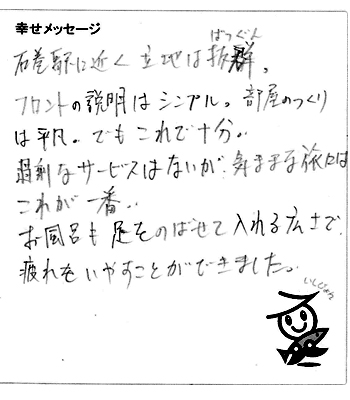 幸せメッセージ
石巻駅に近く立地は抜群。
ばつぐん
フロントの説明はシンプル。部屋のつくり
は平凡。でもこれで十分。
過剰なサービスはないが、気ままな旅には
これが一番。
お風呂も足をのばせて入れる広さで、
疲れをいやすことができました。
いしぴょん